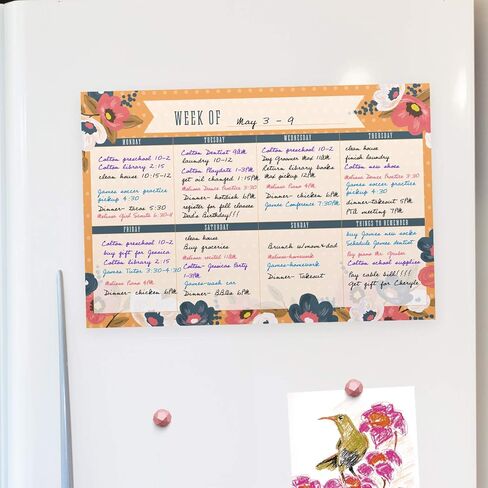 WEEK OF May 3 - 9
MONDAY
Colton preschool 10-2
Colton library 2:15
clean house 10:15-12
James soccer practice
pickup 4:30
Dinner- tacos 5:30
Melissa Girl Scouts 6:30-8
TUESDAY
Colton Dentist 9AM
laundry 10-12
Colton Playdate 1-3PM
get oil changed 1:15PM
Melissa Dance Practice 3:30
Dinner- hotdish 6PM
register for fall classes
Dad's Birthday!!!
WEDNESDAY
Colton preschool 10-2
Dog Groomer Max 11AM
Return library books
Max pickup 12PM
Melissa Piano 4PM
Dinner- chicken 6PM
James Conference 7:30PM
THURSDAY
clean house
finish laundry
Colton new shoes
Melissa Dance Practice 3:30
James soccer practice
pickup 4:30
dinner-takeout 5PM
PTA meeting 7PM
FRIDAY
Colton preschool 10-2
buy gift for Jessica
Colton library 2:15
James Tutor 3:30-4:30
Melissa Piano 4PM
Dinner- chicken 6PM
SATURDAY
clean house
Buy groceries
Melissa recital 11AM
Colton- Jessica's Party
1-3PM
James-wash car
Dinner- BBQs 6PM
SUNDAY
Brunch w/mom+dad
Melissa-homework
James-homework
Dinner- Takeout
THINGS TO REMEMBER
buy James new socks
Schedule James dentist
Pay piano Mr. Gruber
Colton school supplies
Pay cable bill!!!!
Get gift for Cheryle